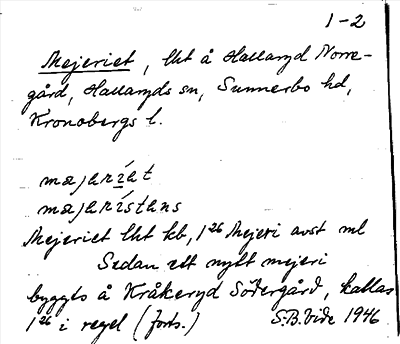 1-2
Mejeriet, lht å Hallaryd Norre-
gård, Hallaryds sn, Sunnerbo hd,
Kronobergs l.
mæjəríət
mæjərístəns
Mejeriet lht kb, 1²⁶ Mejeri avst ml
Sedan ett nytt mejeri
byggts å Kråkeryd Södergård, kallas
1²⁶ i regel (forts.) S.B.Vide 1946